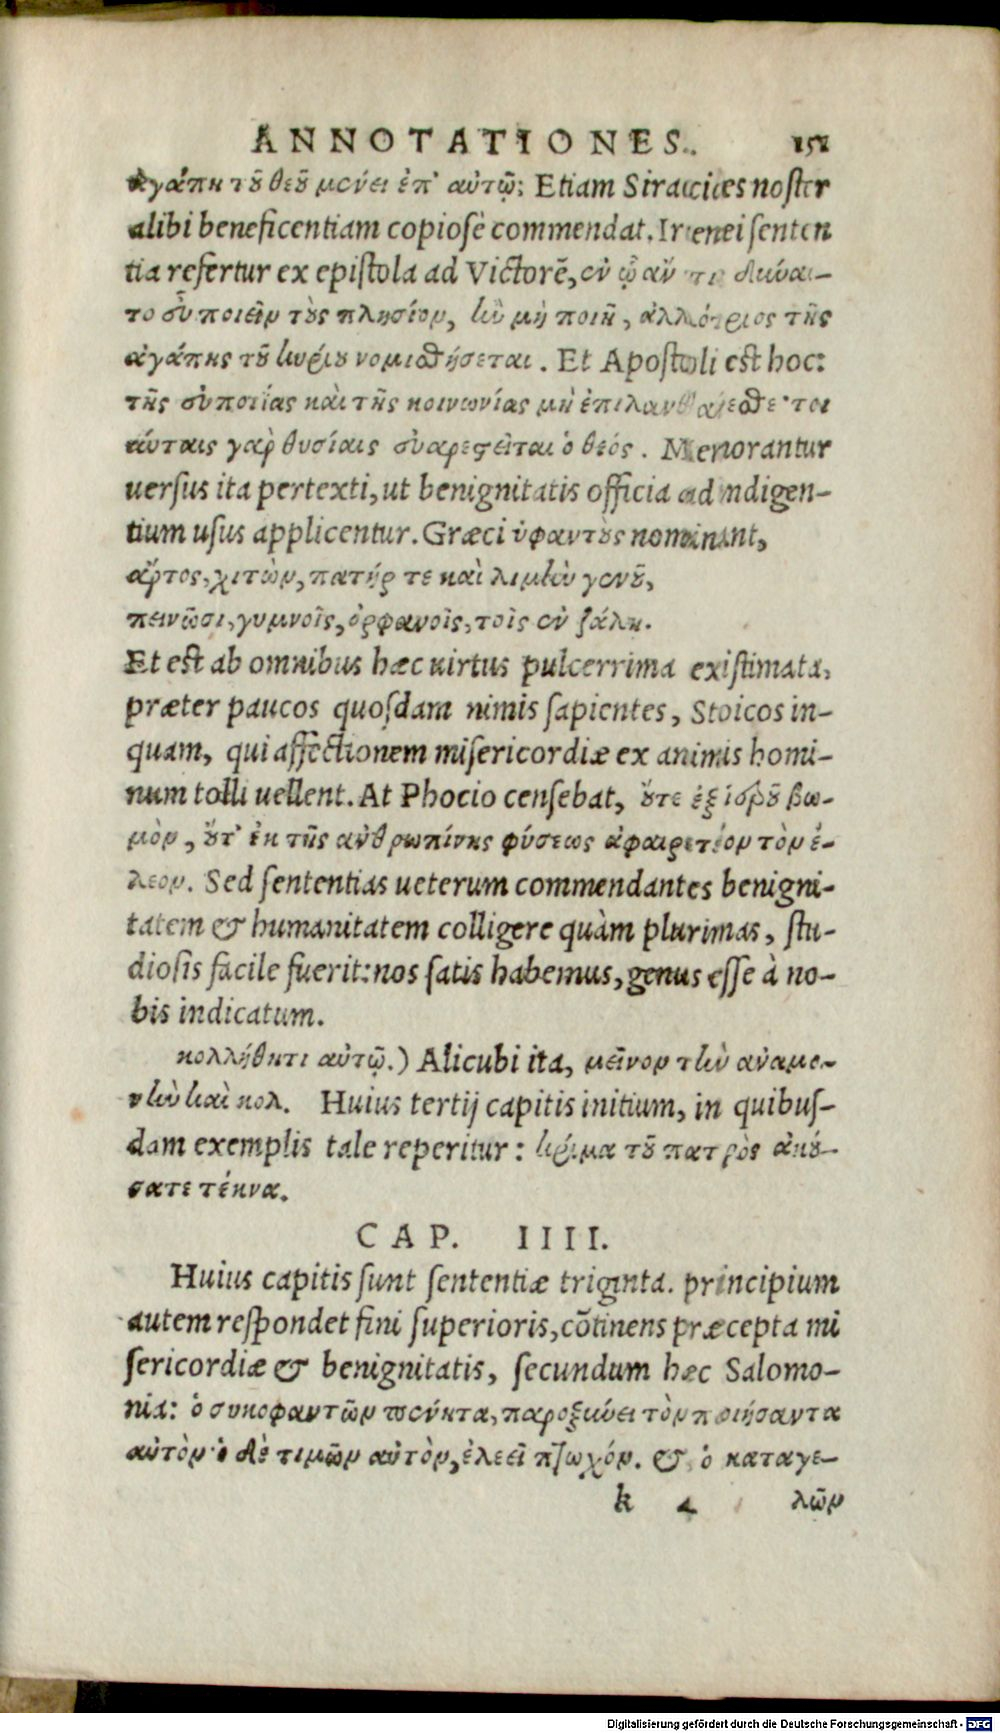 ANNOTATIONES. 151
ἀγάπη τοῦ θεοῦ μένει ἐπ' αὐτῷ; Etiam Siracides noster
alibi beneficentiam copiosè commendat. Irenei senten
tia refertur ex epistola ad Victorẽ, ἐν ᾧ ἄν τις δύναι-
το εὖ ποιεῖν τοὺς πλησίον, καὶ μὴ ποιῇ, ἀλλότριος τῆς
ἀγάπης τοῦ κυρίου νομισθήσεται. Et Apostoli est hoc:
τῆς εὐποιΐας καὶ τῆς κοινωνίας μὴ ἐπιλανθάνεσθε· τοι
αύταις γὰρ θυσίαις εὐαρεστεῖται ὁ θεός. Memorantur
uersus ita pertexti, ut benignitatis officia ad indigen-
tium usus applicentur. Græci ὑφαντοὺς nominant,
ἄρτος, χιτὼν, πατήρ τε καὶ λιμὴν γενοῦ,
πεινῶσι, γυμνοῖς, ὀρφανοῖς, τοῖς ἐν ζάλῃ.
Et est ab omnibus hæc uirtus pulcerrima existimata,
præter paucos quosdam nimis sapientes, Stoicos in-
quam, qui affectionem misericordiæ ex animis homi-
num tolli uellent. At Phocio censebat, οὔτε ἐξ ἱεροῦ βω-
μὸν, οὔτ' ἐκ τῆς ἀνθρωπίνης φύσεως ἀφαιρετέον τὸν ἔ-
λεον. Sed sententias ueterum commendantes benigni-
tatem & humanitatem colligere quàm plurimas, stu-
diosis facile fuerit: nos satis habemus, genus esse à no-
bis indicatum.
κολλήθητι αὐτῷ.) Alicubi ita, μεῖνον τὴν ἀναμο-
νὴν καὶ κολ. Huius tertij capitis initium, in quibus-
dam exemplis tale reperitur: κρίμα τοῦ πατρὸς ἀκού-
σατε τέκνα.
CAP. IIII.
Huius capitis sunt sententiæ triginta. principium
autem respondet fini superioris, cõtinens præcepta mi
sericordiæ & benignitatis, secundum hæc Salomo-
nia: ὁ συκοφαντῶν πένητα, παροξύνει τὸν ποιήσαντα
αὐτὸν· ὁ δὲ τιμῶν αὐτὸν, ἐλεεῖ πτωχόν. & ὁ καταγε-
k 4 λῶν
Digitalisierung gefördert durch die Deutsche Forschungsgemeinschaft - DFG